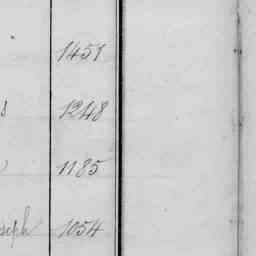 1451
1248
1185
seph 1054